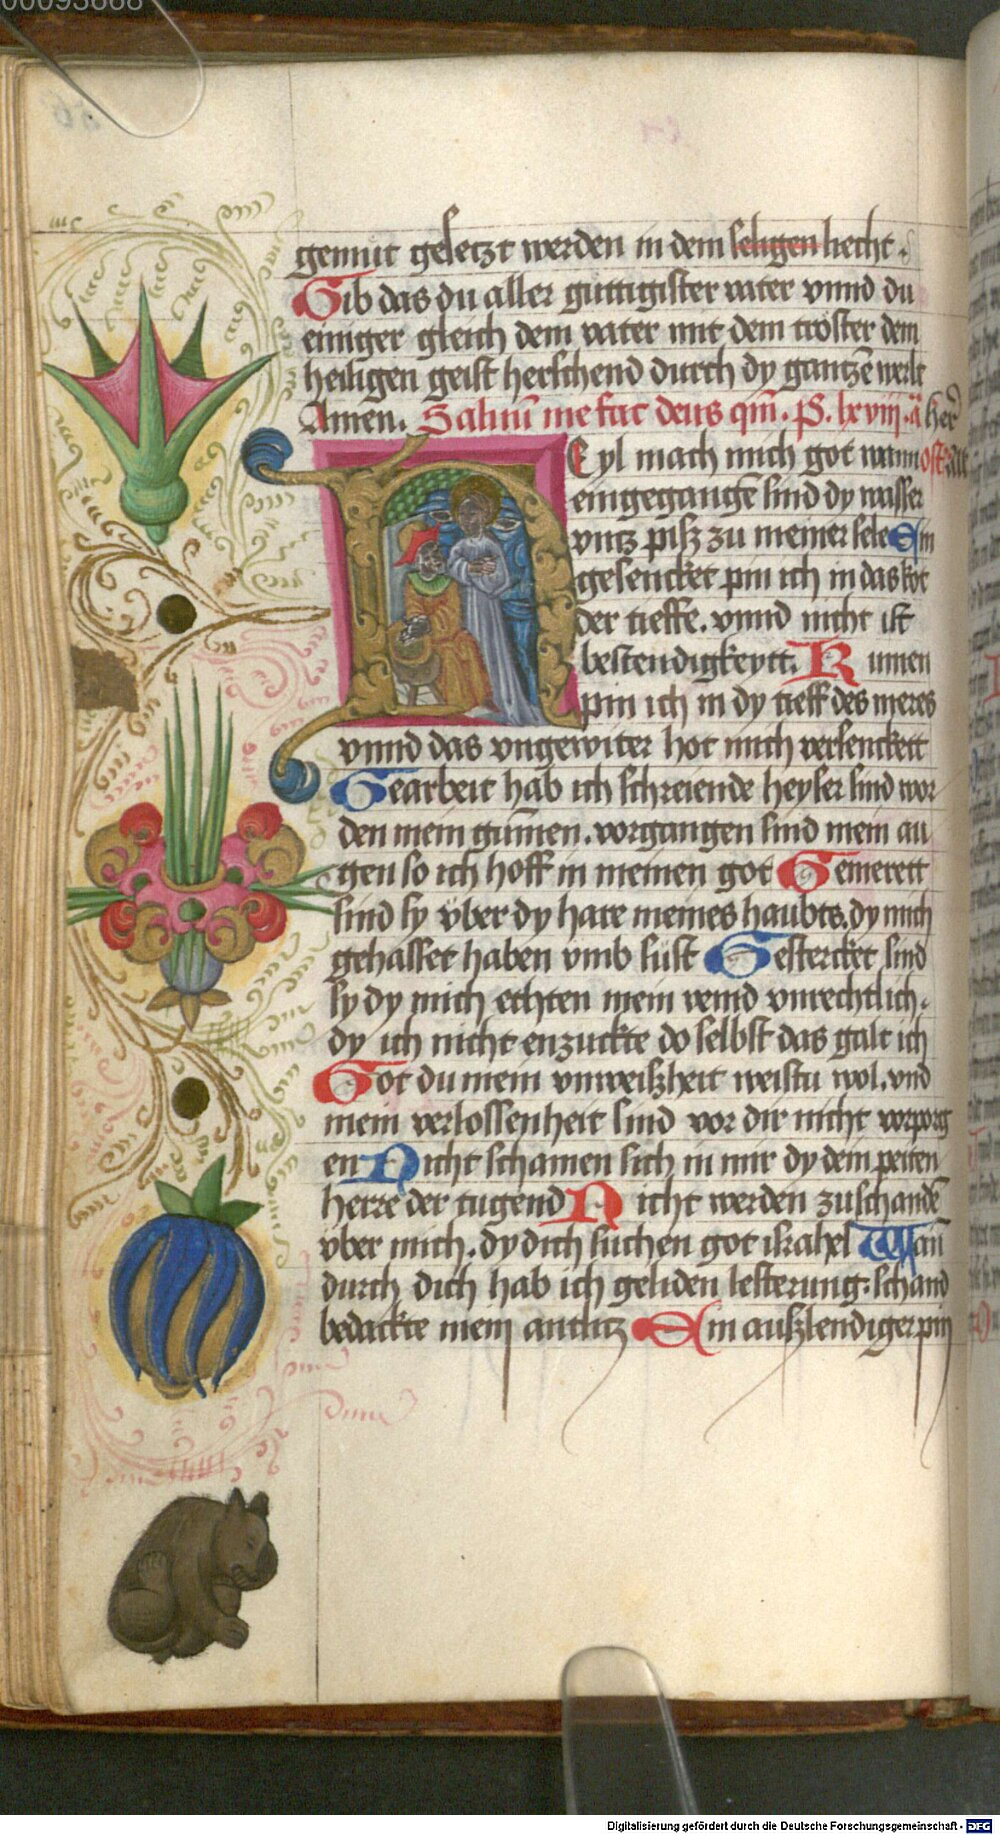 00093668
gemut gesetzt werden in dem seligen liecht .
Gib das du aller guttigister vater vnnd du
einiger gleich dem vater mit dem troster dem
heiligen geist herschend durch dy gantzē werlt
Amen. Saluū me fac deus qm̄. Ps. lxviij.
Heyl mach mich got wann
eingegangē sind dy wasser
vntz pisz zu meiner sele Ein
gesencket pin ich in das kot
der tieffe. vnnd nicht ist
bestendigkeytt. Kumen
pin ich in dy tieff des meres
vnnd das vngewiter hot mich versenckett
Gearbeit hab ich schreiende heyser sind wor
den mein gūmen. vorgangen sind mein au
gen so ich hoff in meinen got Gemerett
sind sy vber dy hare meines haubts. dy mich
gehasset haben vmb sust Gestercket sind
sy dy mich echten mein veind vnrechtlich.
dy ich nicht enzuckte do selbst das galt ich
Got du mein vnweiszheit weistu wol. vnd
mein verlossenheit sind vor dir nicht vorporg
en Nicht schamen sich in mir dy dein peiten
herre der tugend Nicht werden zuschandē
vber mich. dy dich suchen got israhel Wan̄
durch dich hab ich geliden lesterung. schand
bedackte mein antlitz Ein auszlendiger pin
Digitalisierung gefördert durch die Deutsche Forschungsgemeinschaft - DFG